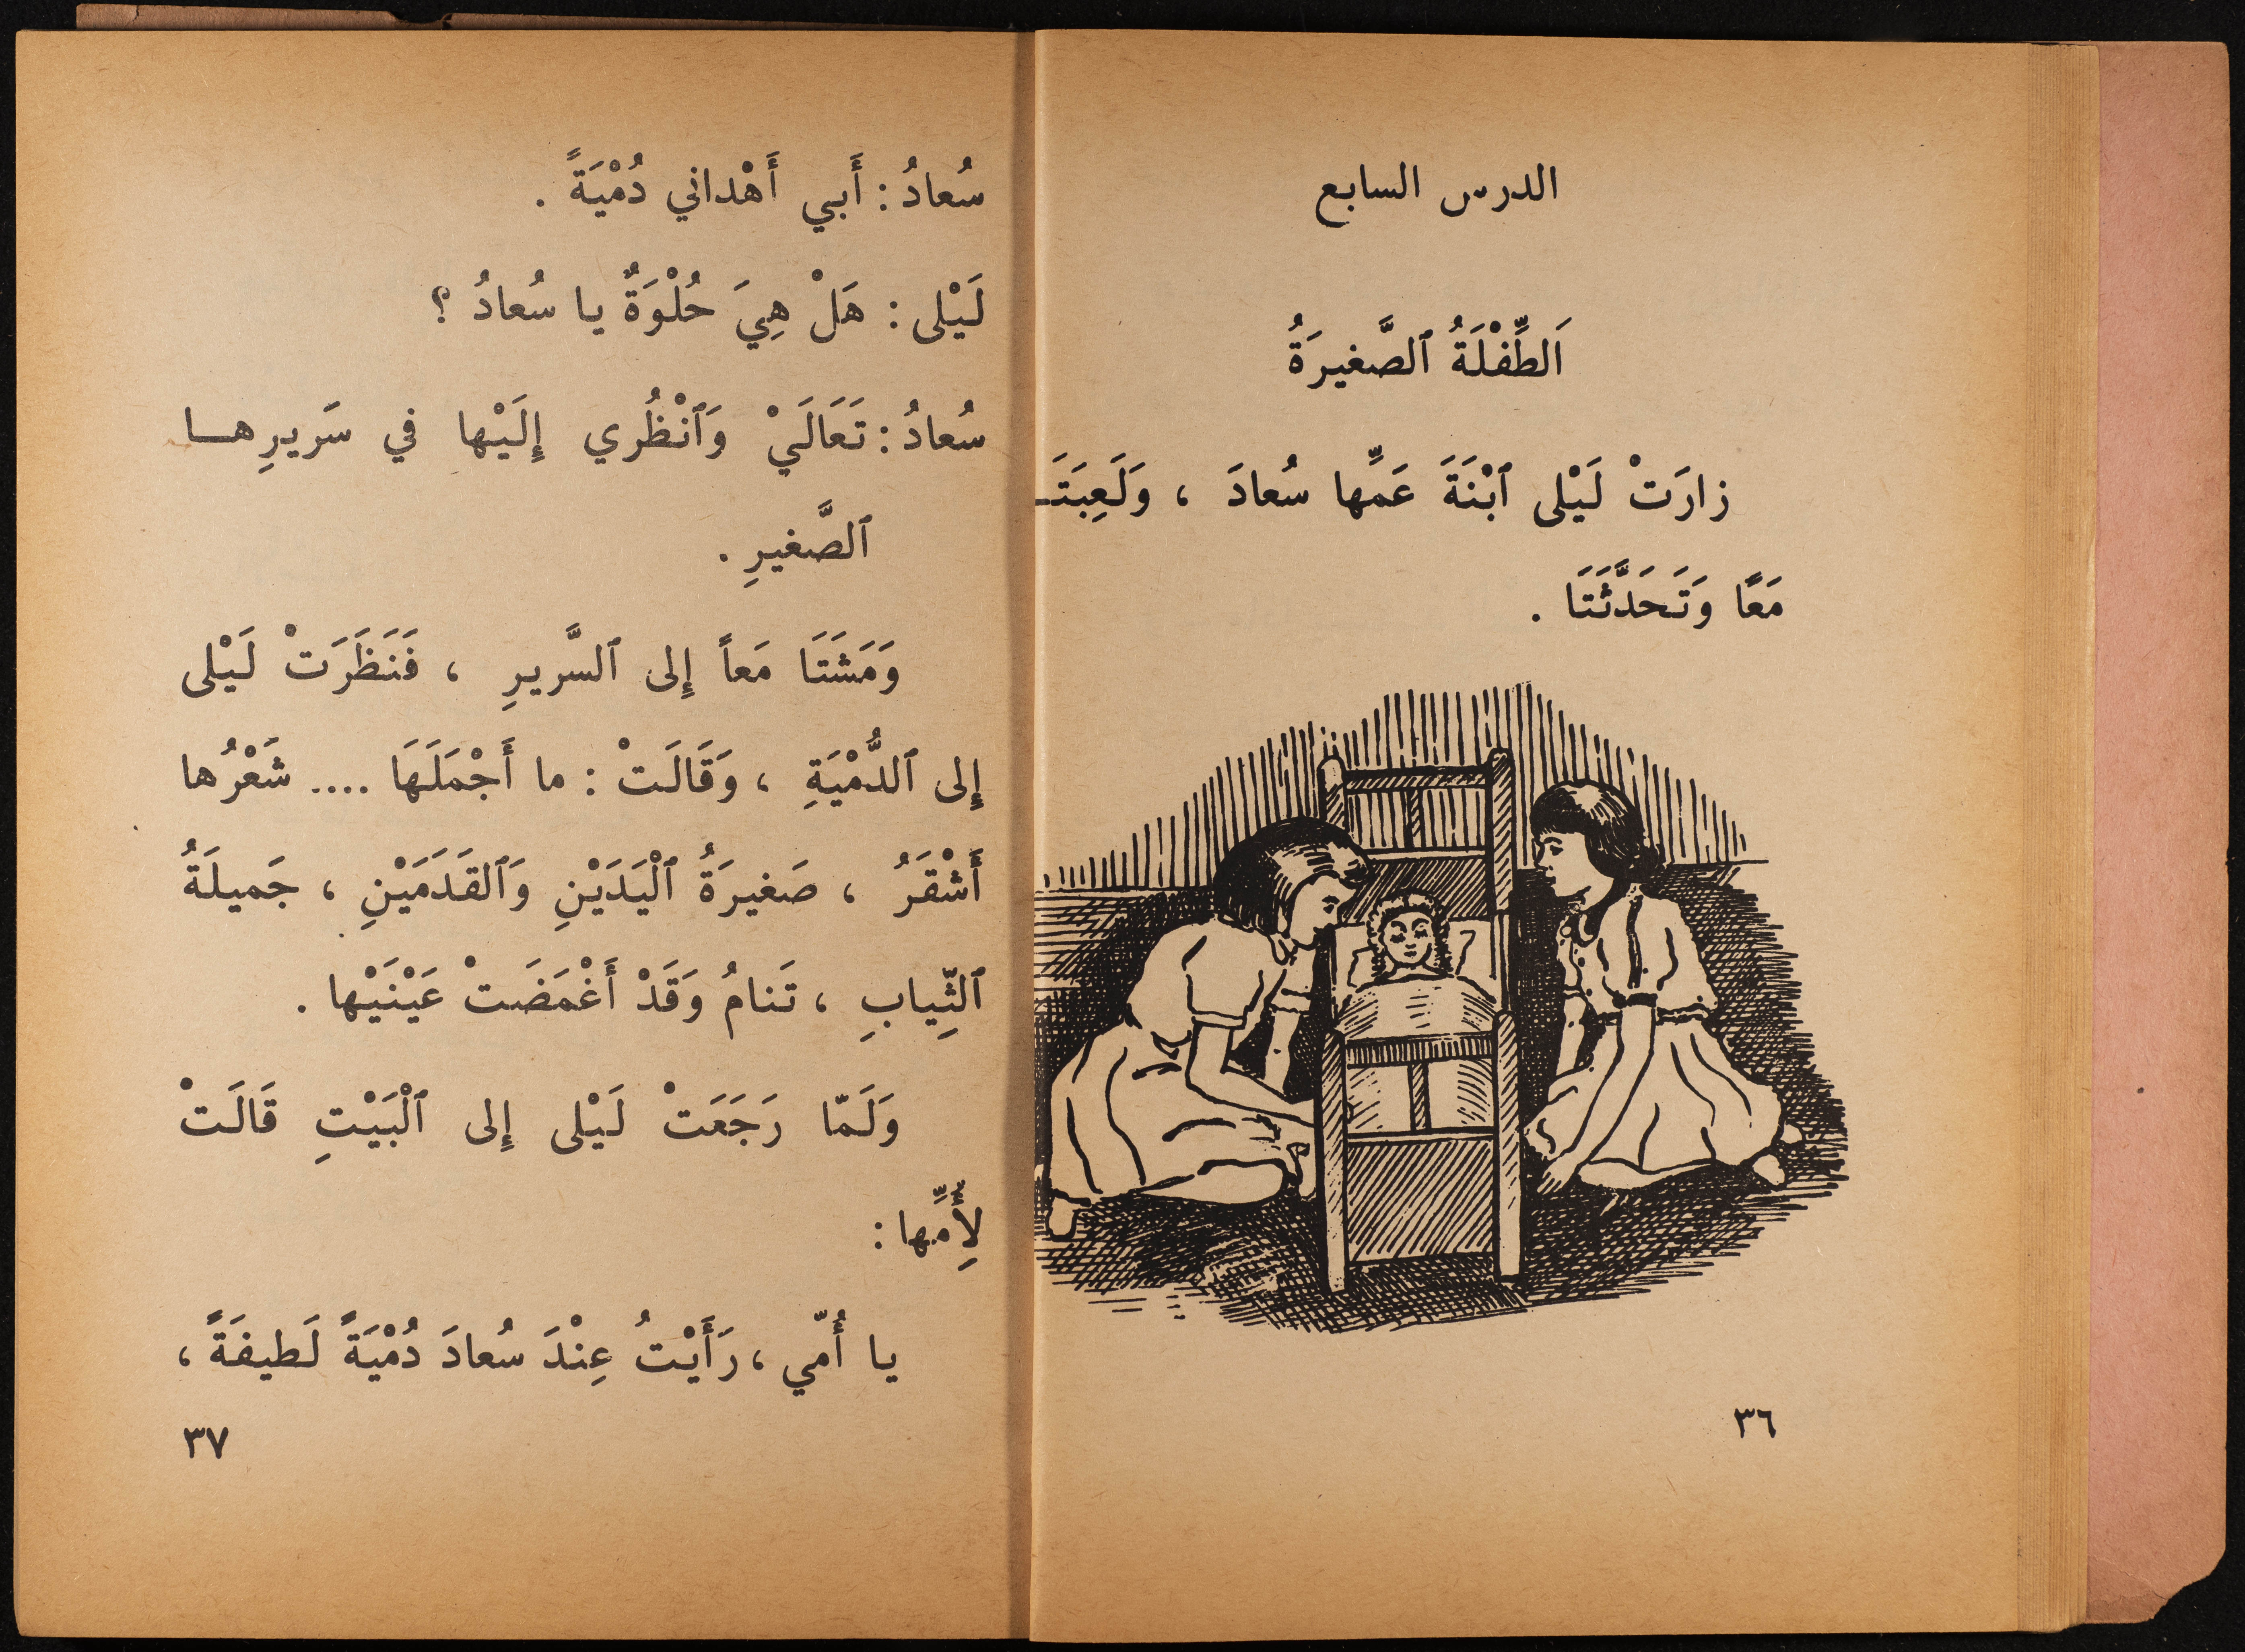 الدرس السابع
اَلطِّفْلَةُ ٱلصَّغيرَةُ
زارَتْ لَيْلى ٱبْنَةَ عَمِّها سُعادَ ، وَلَعِبَتَـ
مَعًا وَتَحَدَّثَتَا .
٣٦
سُعادُ : أَبي أَهْداني دُمْيَةً .
لَيْلى : هَلْ هِيَ حُلْوَةٌ يا سُعادُ ؟
سُعادُ : تَعَالَيْ وَٱنْظُري إِلَيْها في سَريرِهـا
ٱلصَّغيرِ .
وَمَشَتَا مَعاً إِلى ٱلسَّريرِ ، فَنَظَرَتْ لَيْلى
إِلى ٱلدُّمْيَةِ ، وَقَالَتْ : ما أَجْمَلَهَا .... شَعْرُها
أَشْقَرُ ، صَغيرَةُ ٱلْيَدَيْنِ وَٱلقَدَمَيْنِ ، جَميلَةُ
ٱلثِّيابِ ، تَنامُ وَقَدْ أَغْمَضَتْ عَيْنَيْها .
وَلَمّا رَجَعَتْ لَيْلى إِلى ٱلْبَيْتِ قَالَتْ
لِأُمِّها :
يا أُمّي ، رَأَيْتُ عِنْدَ سُعادَ دُمْيَةً لَطيفَةً ،
٣٧